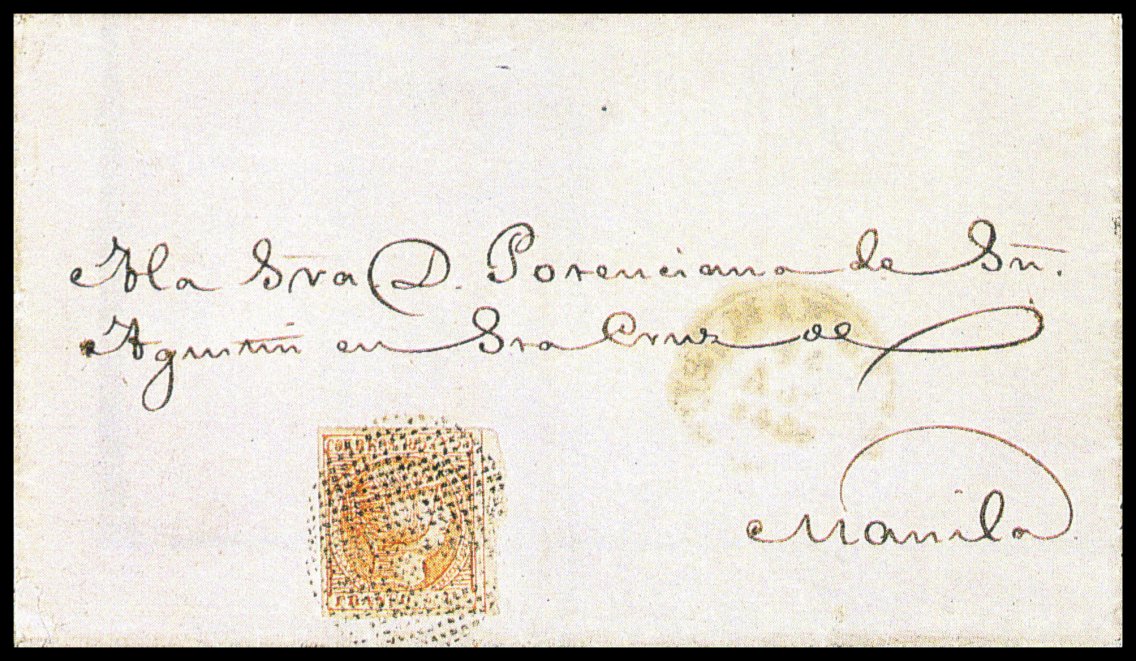 A la Sra D. Potenciana de Sn.
Agustin en Sta Cruz de
Manila
CORREOS